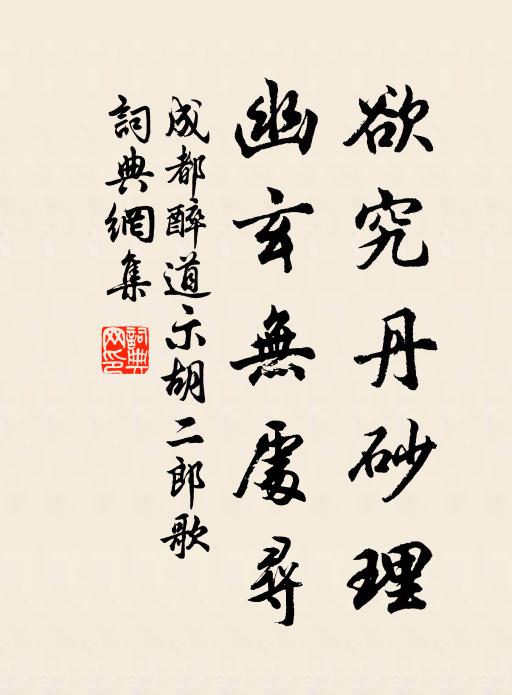 欲究丹砂理
幽玄無處尋
成都醉道示胡二郎歌
詞典網集
詞典
網印